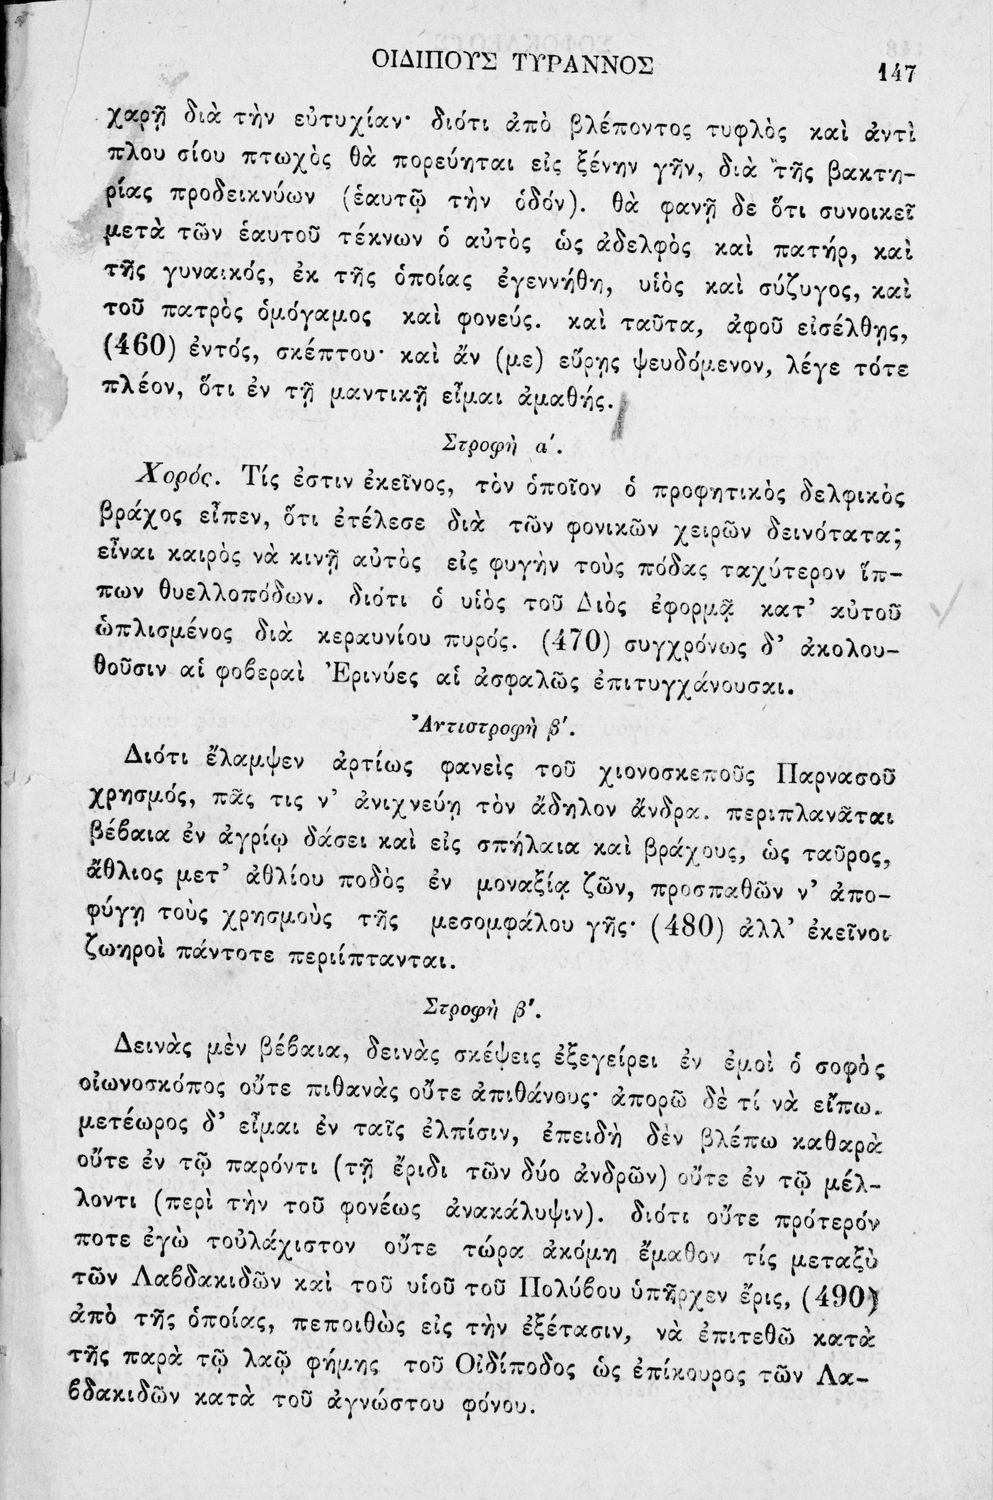 ΟΙΔΙΠΟΥΣ ΤΥΡΑΝΝΟΣ 147
χαρῇ διὰ τὴν εὐτυχίαν· διότι ἀπὸ βλέποντος τυφλὸς καὶ ἀντὶ
πλου σίου πτωχὸς θὰ πορεύηται εἰς ξένην γῆν, διὰ τῆς βακτη-
ρίας προδεικνύων (ἑαυτῷ τὴν ὁδόν). θὰ φανῇ δε ὅτι συνοικεῖ
μετὰ τῶν ἑαυτοῦ τέκνων ὁ αὐτὸς ὡς ἀδελφὸς καὶ πατήρ, καὶ
τῆς γυναικός, ἐκ τῆς ὁποίας ἐγεννήθη, υἱὸς καὶ σύζυγος, καὶ
τοῦ πατρὸς ὁμόγαμος καὶ φονεύς. καὶ ταῦτα, ἀφοῦ εἰσέλθῃς,
(460) ἐντός, σκέπτου· καὶ ἄν (με) εὕρῃς ψευδόμενον, λέγε τότε
πλέον, ὅτι ἐν τῇ μαντικῇ εἶμαι ἀμαθής.
Στροφὴ α΄.
Χορός. Τίς ἐστιν ἐκεῖνος, τὸν ὁποῖον ὁ προφητικὸς δελφικὸς
βράχος εἶπεν, ὅτι ἐτέλεσε διὰ τῶν φονικῶν χειρῶν δεινότατα;
εἶναι καιρὸς νὰ κινῇ αὐτὸς εἰς φυγὴν τοὺς πόδας ταχύτερον ἵπ-
πων θυελλοπόδων. διότι ὁ υἱὸς τοῦ Διὸς ἐφορμᾷ κατ’ αὐτοῦ
ὡπλισμένος διὰ κεραυνίου πυρός. (470) συγχρόνως δ’ ἀκολου-
θοῦσιν αἱ φοβεραὶ Ἐρινύες αἱ ἀσφαλῶς ἐπιτυγχάνουσαι.
Ἀντιστροφὴ β΄.
Διότι ἔλαμψεν ἀρτίως φανεὶς τοῦ χιονοσκεποῦς Παρνασοῦ
χρησμός, πᾶς τις ν’ ἀνιχνεύῃ τὸν ἄδηλον ἄνδρα. περιπλανᾶται
βέβαια ἐν ἀγρίῳ δάσει καὶ εἰς σπήλαια καὶ βράχους, ὡς ταῦρος,
ἄθλιος μετ’ ἀθλίου ποδὸς ἐν μοναξίᾳ ζῶν, προσπαθῶν ν’ ἀπο-
φύγῃ τοὺς χρησμοὺς τῆς μεσομφάλου γῆς· (480) ἀλλ’ ἐκεῖνοι
ζωηροὶ πάντοτε περιίπτανται.
Στροφὴ β΄.
Δεινὰς μὲν βέβαια, δεινὰς σκέψεις ἐξεγείρει ἐν ἐμοὶ ὁ σοφὸς
οἰωνοσκόπος οὔτε πιθανὰς οὔτε ἀπιθάνους· ἀπορῶ δὲ τί νὰ εἴπω.
μετέωρος δ’ εἶμαι ἐν ταῖς ἐλπίσιν, ἐπειδὴ δὲν βλέπω καθαρὰ
οὔτε ἐν τῷ παρόντι (τῇ ἔριδι τῶν δύο ἀνδρῶν) οὔτε ἐν τῷ μέλ-
λοντι (περὶ τὴν τοῦ φονέως ἀνακάλυψιν). διότι οὔτε πρότερόν
ποτε ἐγὼ τοὐλάχιστον οὔτε τώρα ἀκόμη ἔμαθον τίς μεταξὺ
τῶν Λαβδακιδῶν καὶ τοῦ υἱοῦ τοῦ Πολύβου ὑπῆρχεν ἔρις, (490)
ἀπὸ τῆς ὁποίας, πεποιθὼς εἰς τὴν ἐξέτασιν, νὰ ἐπιτεθῶ κατὰ
τῆς παρὰ τῷ λαῷ φήμης τοῦ Οἰδίποδος ὡς ἐπίκουρος τῶν Λα-
βδακιδῶν κατὰ τοῦ ἀγνώστου φόνου.